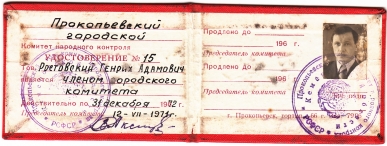 Прокопьевский
городской
Комитет народного контроля
УДОСТОВЕРЕНИЕ № 15
Тов. Ортовский Генрих Адамович
является членом городского
комитета
Действительно по 31 декабря 1972
Председатель комитета
12-VII-1971г.
Продлено до 196 г.
Председатель комитета
Продлено до 196 г.
Председатель комитета
г. Прокопьевск,
РСФСР
РСФСР